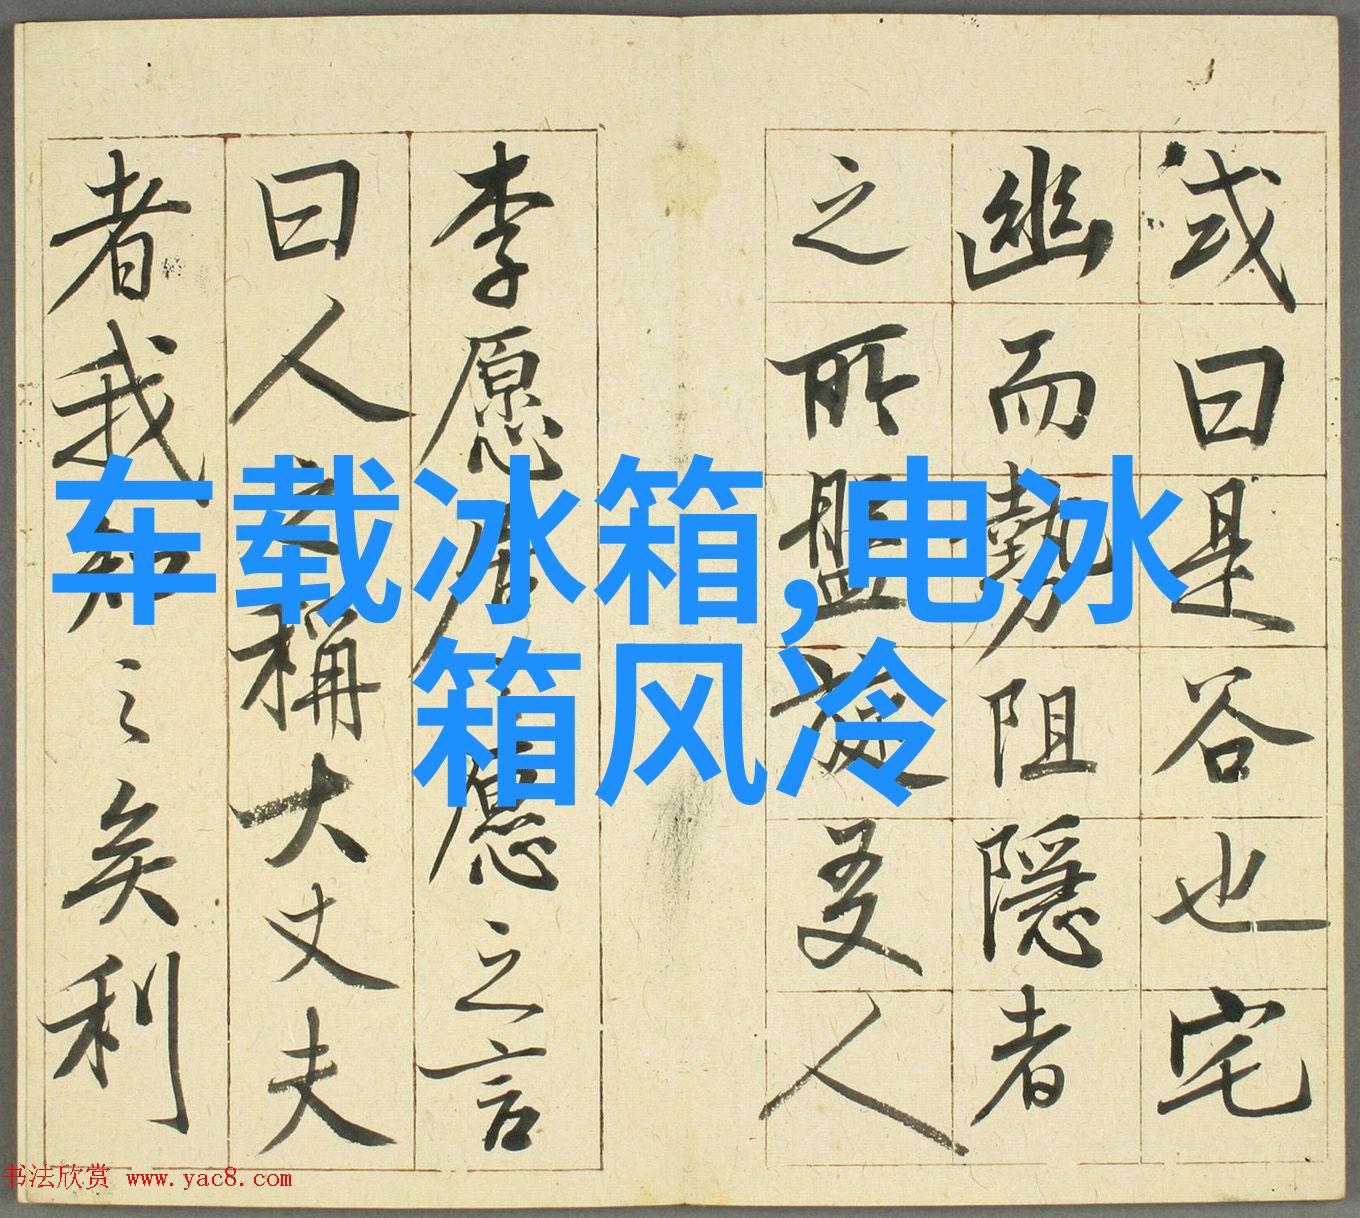 或曰是谷也宅
幽而勢阻隱者
之所盤旋友人
李愿居之愿之言
曰人之稱大丈夫
者我知之矣利
车载冰箱,电冰
箱风冷
书法欣赏 www.yac8.com